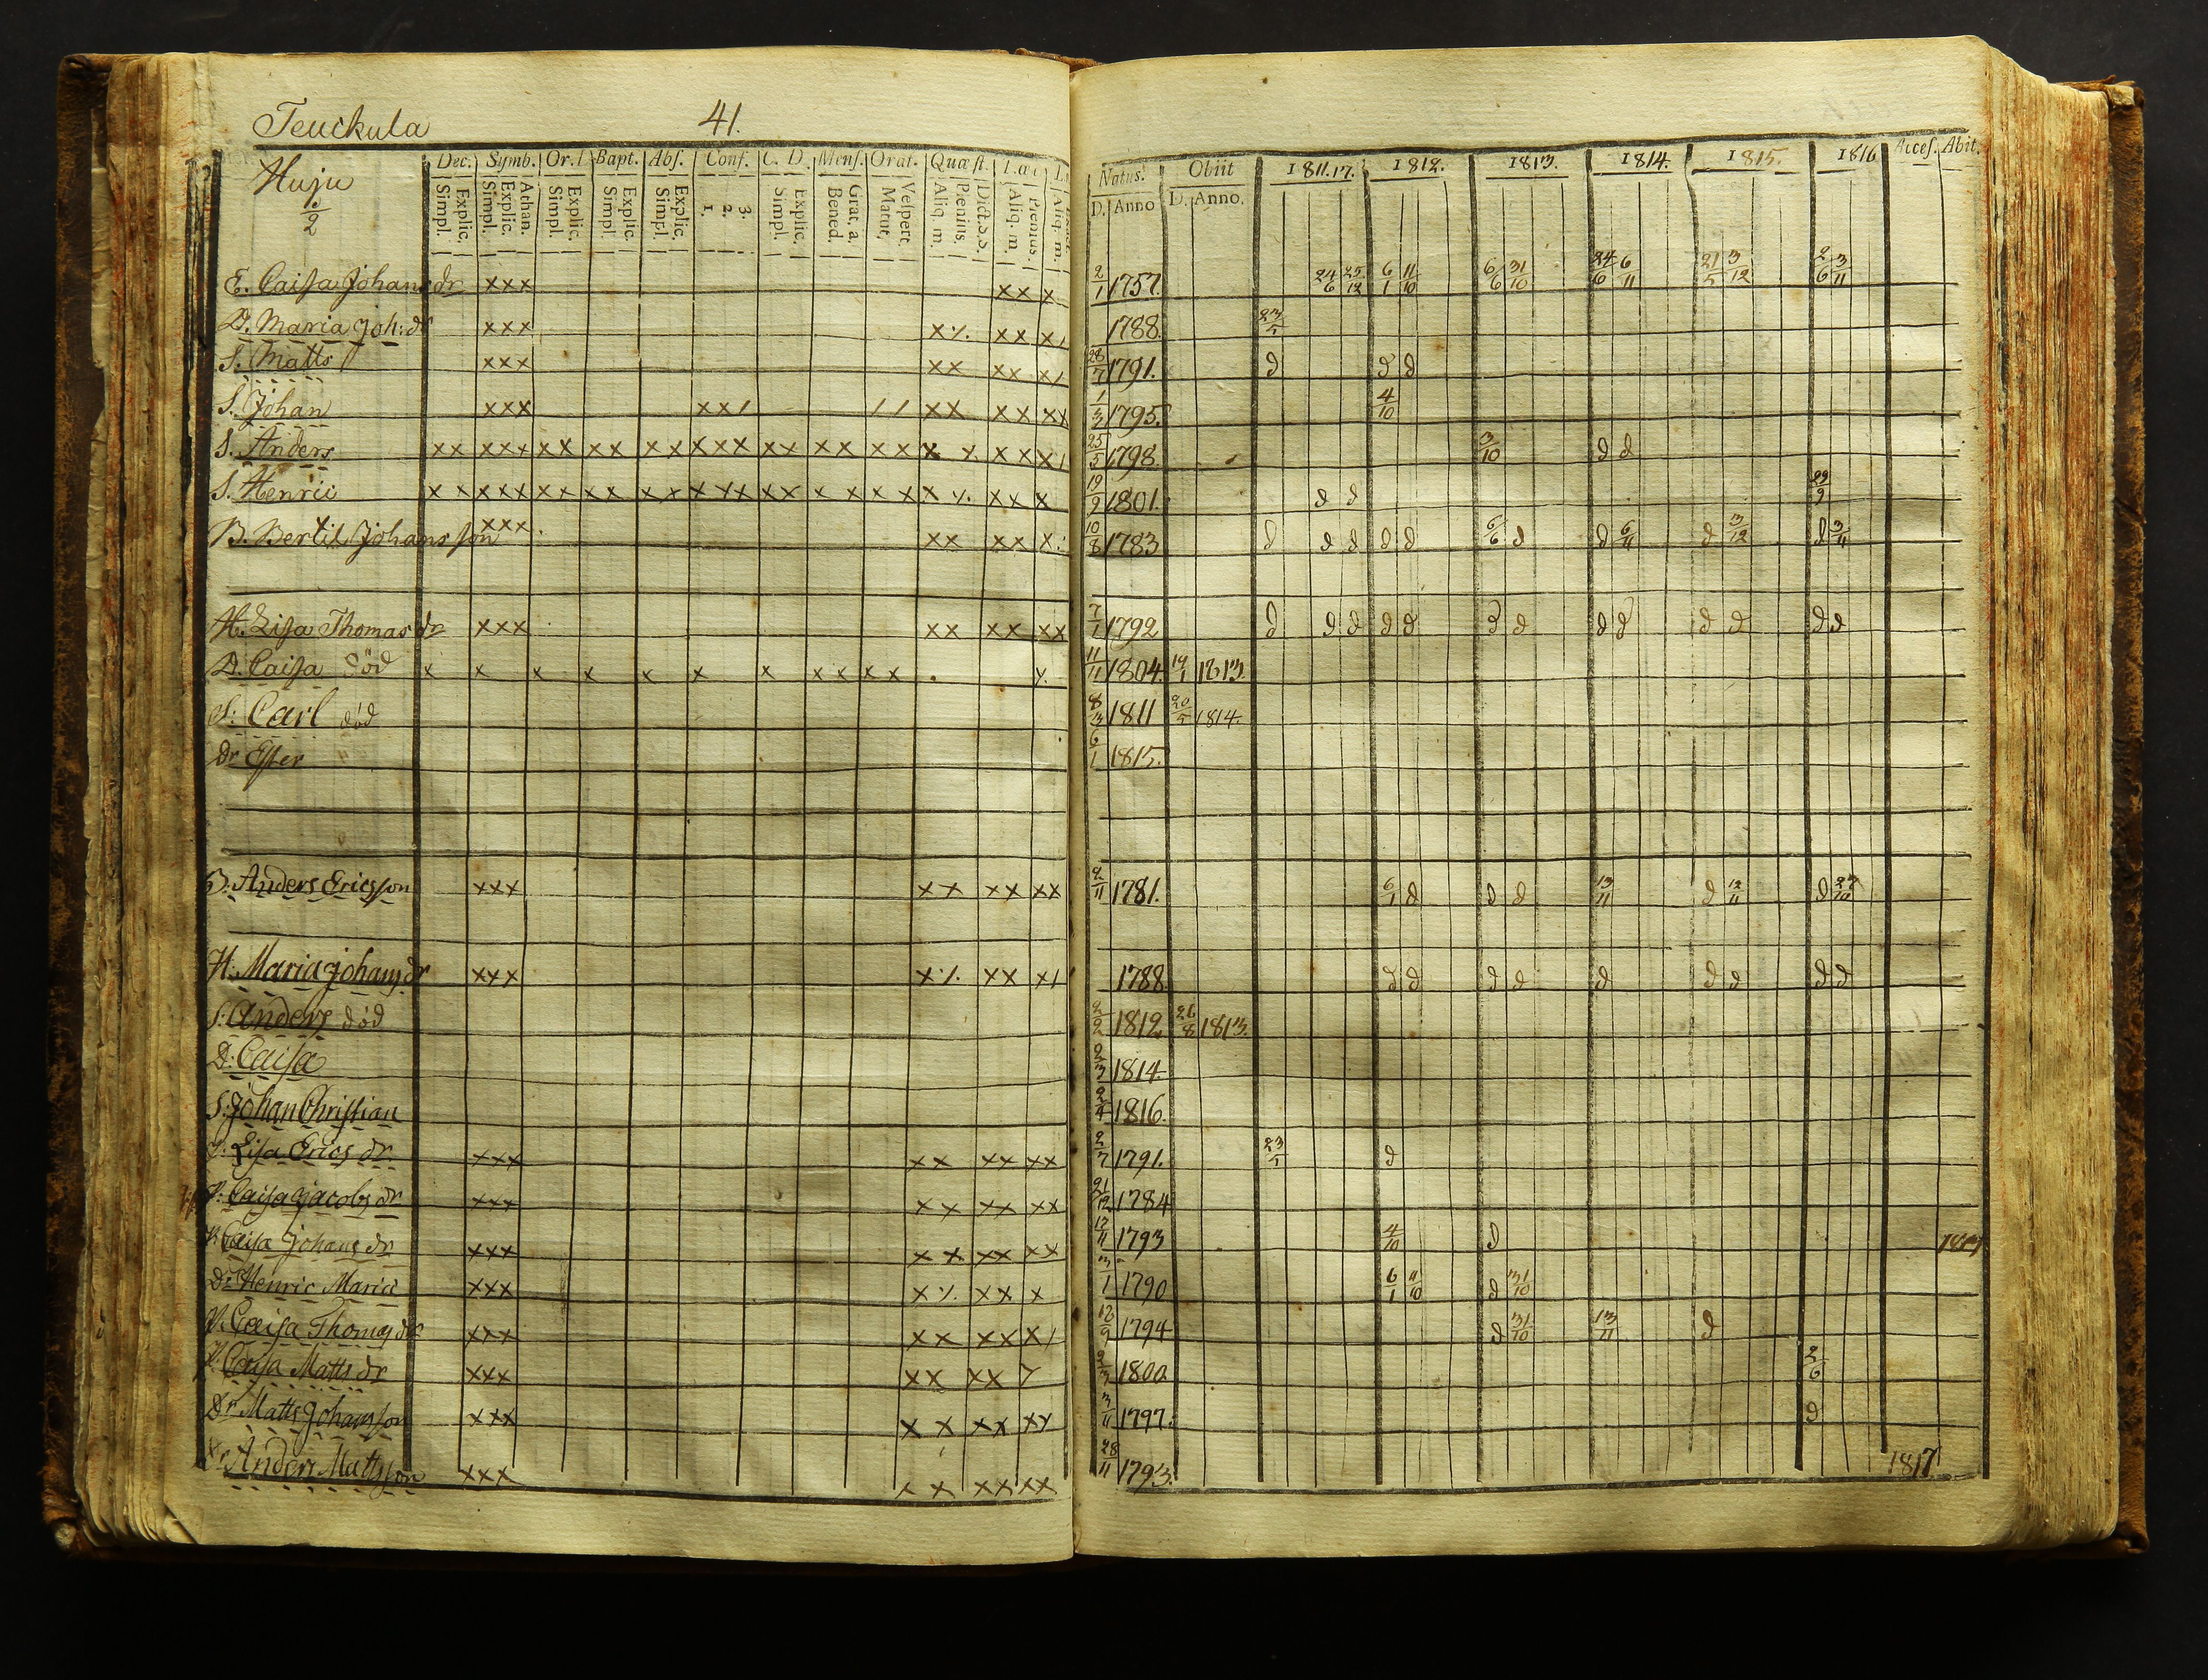 Teuckula 41.
Huju
2
Dec. Symb. Or. Bapt. Abs. Conf. C. D. Mens. Orat. Quæst.
Simpl. Explic. Simpl. Explic. Athan. Simpl. Explic. Simpl. Explic. Simpl. Explic. 1. 2. 3. Simpl. Explic. Bened. Grat. a. Matut. Vespert. Aliq. m. Plenius. Dict. s. s. Aliq. m. Plenius. Aliq. m.
Natus. Obiit 1811.17. 1812. 1813. 1814. 1815. 1816 Acces. Abit.
D. Anno D. Anno.
E. Caisa Johans dr xxx xx x 2/1 1757. 24/6 25/12 6/1 11/10 6/6 31/10 24/6 6/11 21/5 3/12 2/6 3/11
D. Maria Joh: dr xxx x ٪. xx x 1788. 23/5
S. Matts xxx xx xx x/ 28/7 1791. d d d
S. Johan xxx xx/ // xx xx xx 1/3 1795. 4/10
S. Anders xx xxx xx xx xx xxx xx xx xx x x. xx x/ 25/5 1798. 3/10 d d
S. Henric xx xxx xx xx xx xxx xx x x x x x ٪. xx x 19/9 1801. d d 29/9
B. Bertil Johansson xxx xx xx x. 10/8 1783 d d d d d 6/6 d d 6/11 d 3/12 d 3/11
H. Lisa Thomas dr xxx xx xx xx 7/1 1792 d d d d d d d d d d d d d
D. Caisa död x x x x x x x x x x x . y. 11/11 1804. 14/1 1813.
S. Carl död 8/3 1811 20/5 1814.
Dr Ester 6/1 1815.
B. Anders Ericsson xxx xx xx xx 2/11 1781. 6/1 d d d 13/11 d 12/11 d 27/10
H. Maria Johans dr xxx x ٪. xx x/ 1788. d d d d d d d d d
S. Anders död 2/2 1812 26/8 1813.
D. Caisa 2/3 1814.
S. Johan Christian 2/4 1816.
Lisa Erics dr. xxx xx xx xx 2/7 1791. 23/5 d
P. Caisa Jacobs dr xxx xx xx xx 21/12 1784
P. Caisa Johans dr xxx xx xx xx 12/11 1793 4/10 d
Dr Henric Maria xxx x ٪. xx x 3/1 1790 6/1 11/10 d 31/10
P. Caisa Thomas dr xxx xx xx x/ 12/9 1794 d 31/10 13/11 d
P. Caisa Matts dr xxx xx xx y 2/3 1800 2/6
Dr Matts Johansson xxx xx xx xy 3/11 1797. d
Anders Mattsson xxx xx xx xx 28/11 1793. 1817